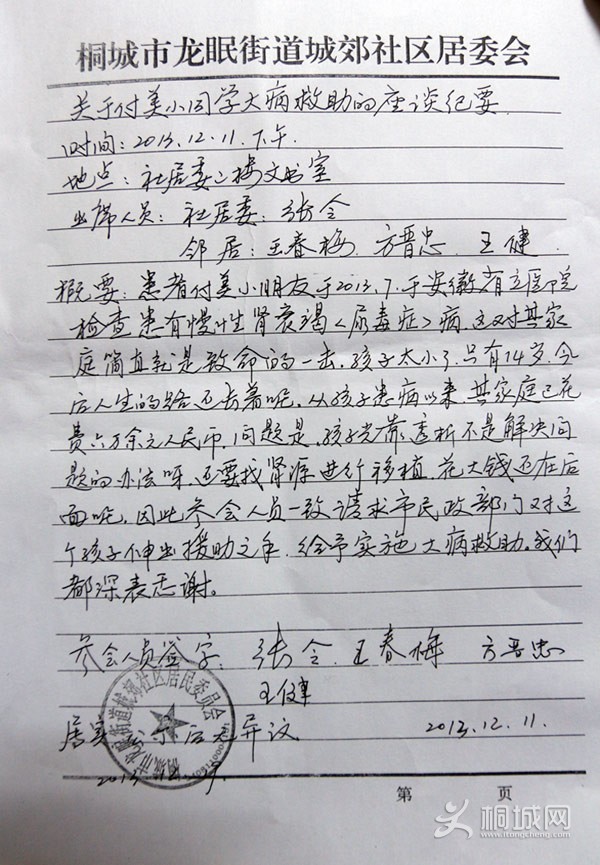 桐城市龙眠街道城郊社区居委会
关于付美小同学大病救助的座谈纪要
时间：2013.12.11.下午
地点：社居委二楼文书室
出席人员：社居委：张令
邻居：王春梅 方晋忠 王健
概要：患者付美小朋友于2013.7.于安徽省立医院
检查患有慢性肾衰竭〈尿毒症〉病.这对其家
庭简直就是致命的一击.孩子太小了.只有14岁.今
后人生的路还长着呢.从孩子患病以来.其家庭已花
费六万余元人民币.问题是.孩子光靠透析不是解决问
题的办法呀.还要找肾源进行移植.花大钱还在后
面呢.因此参会人员一致请求市民政部门对这
个孩子伸出援助之手.给予实施大病救助。我们
都深表志谢。
参会人员签字：张令 王春梅 方晋忠
王健
居实 公示后无异议 2013.12.11.
2013.12.29.
桐城市龙眠街道城郊社区居民委员会
第 页
桐城网
www.itongcheng.com